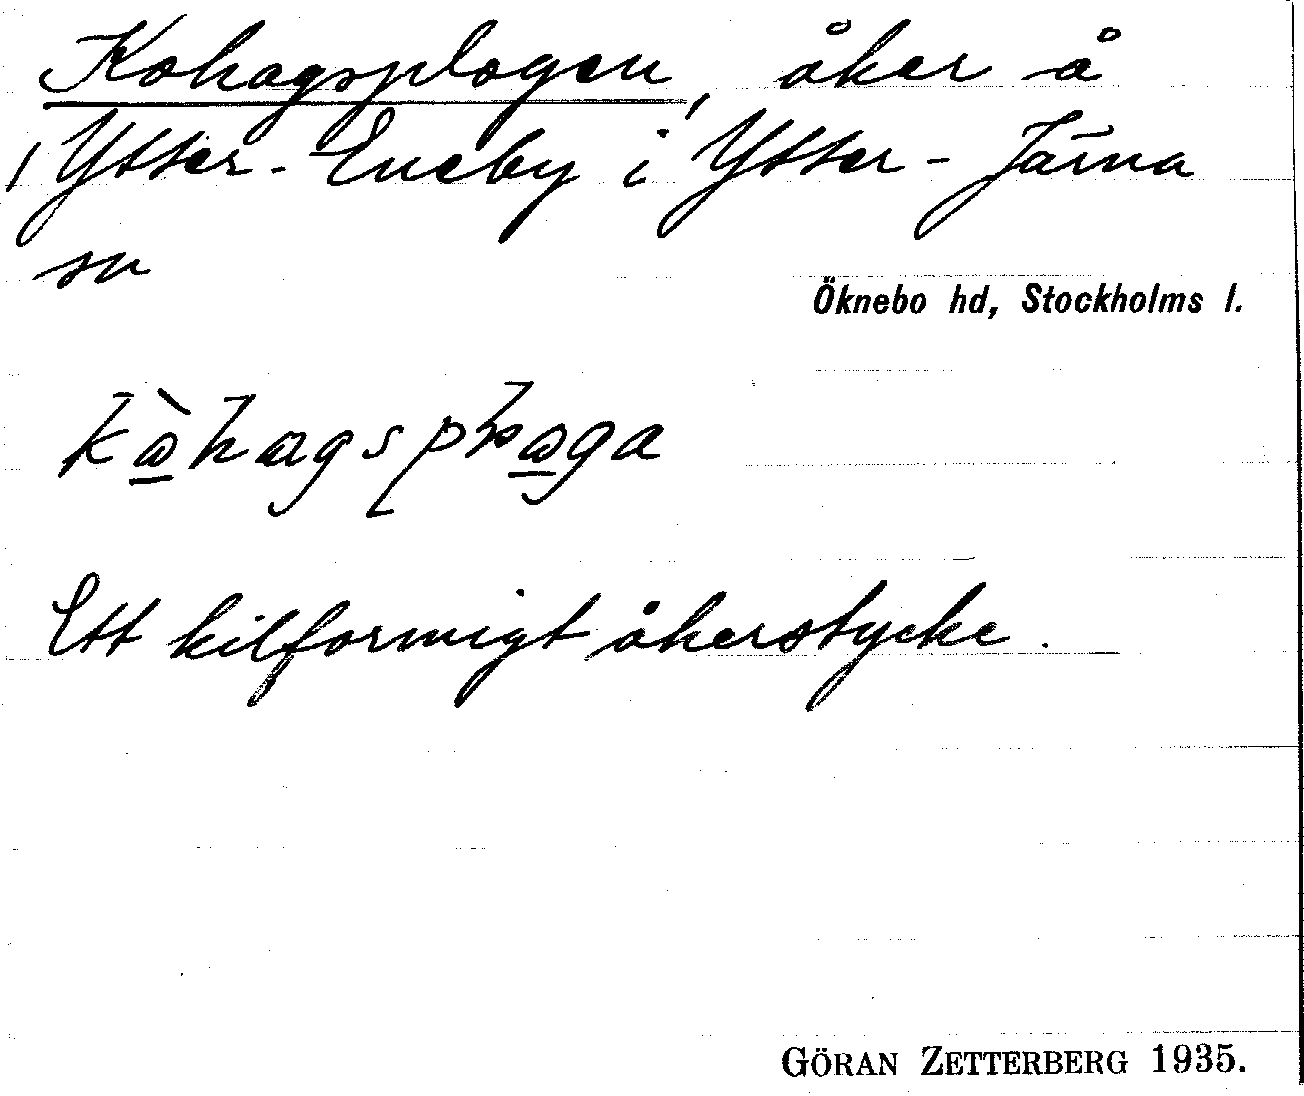 Kohagsplogen, åker å
Ytter-Eneby i Ytter-Järna
sn
Öknebo hd, Stockholms l.
Ett kilformigt åkerstycke.
GÖRAN ZETTERBERG 1935.